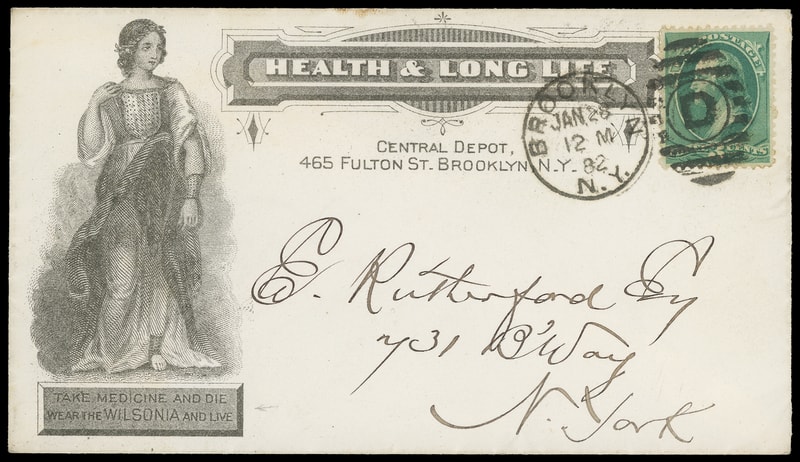 HEALTH & LONG LIFE
CENTRAL DEPOT,
465 FULTON ST. BROOKLYN, N.Y.
BROOKLYN
JAN 26
12 M
82
N.Y.
POSTAGE
CENTS
D
E. Rutherford Esq
731 B'Way
N. York
TAKE MEDICINE AND DIE
WEAR THE WILSONIA AND LIVE